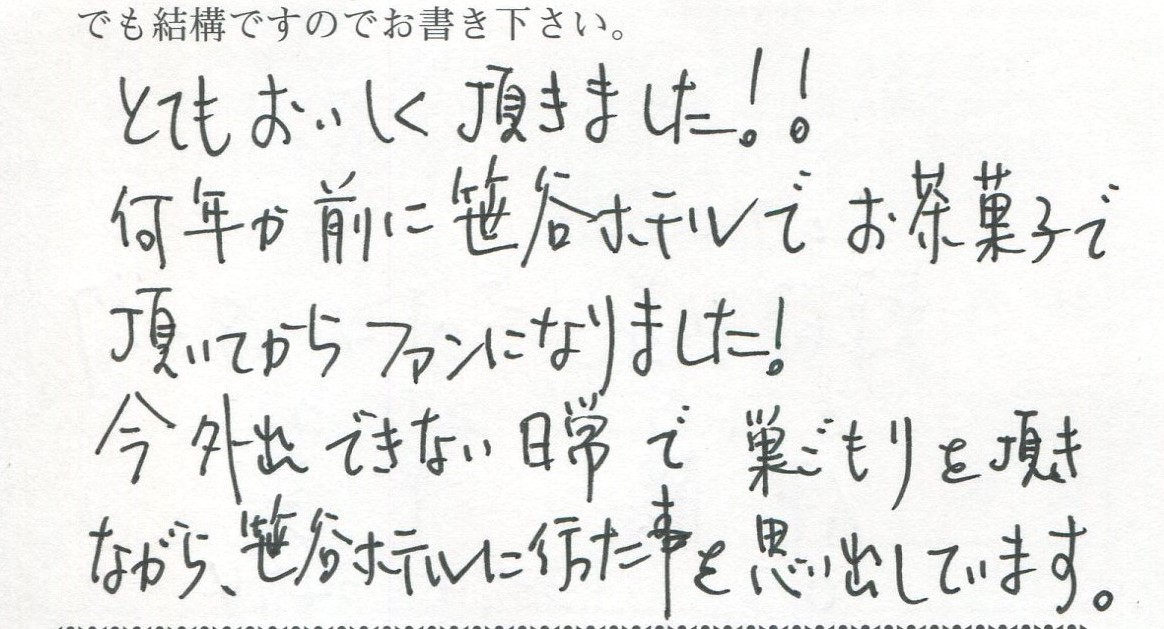 でも結構ですのでお書き下さい。
とてもおいしく頂きました!!
何年か前に笹谷ホテルでお茶菓子で
頂いてからファンになりました!
今外出できない日常で巣ごもりを頂き
ながら、笹谷ホテルに行った事を思い出しています。